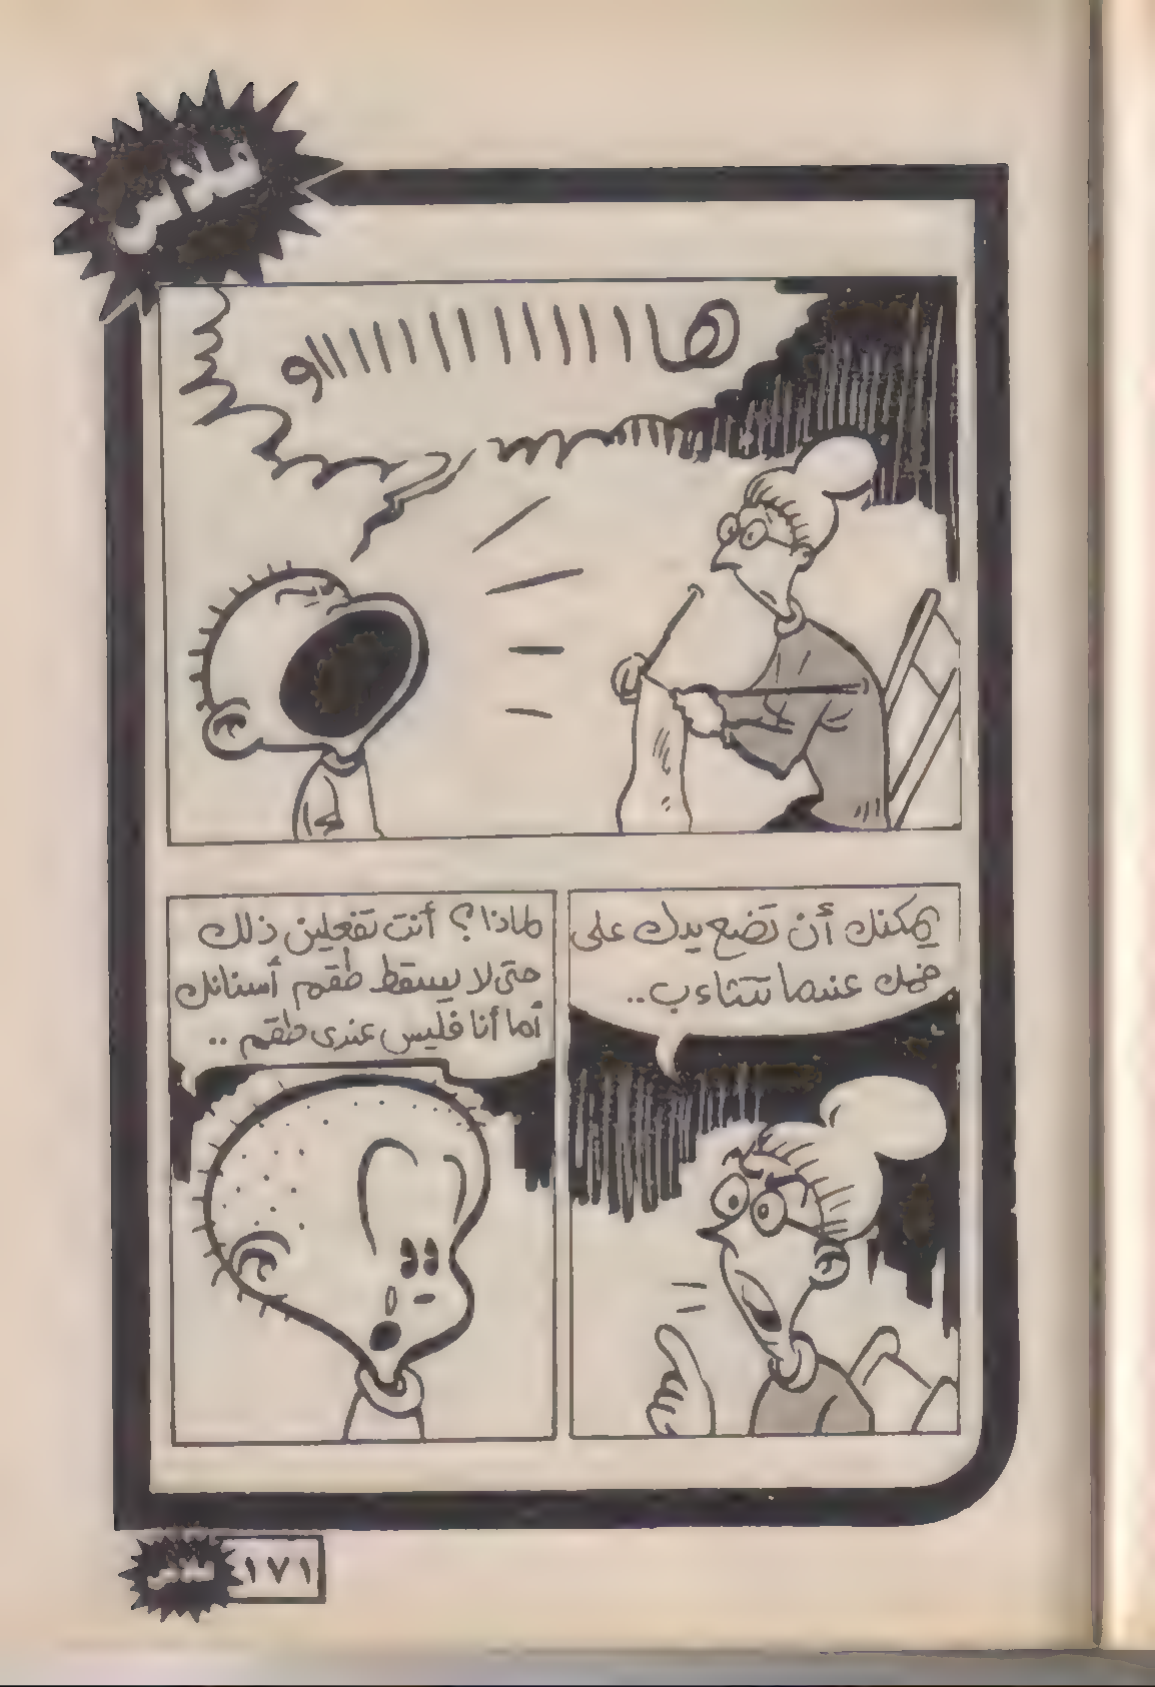 فلاش
هاااااااااااااااو
يمكنك أن تضع يدك على
فمك عندما تتثاءب..
لماذا؟ أنت تفعلين ذلك
حتى لا يسقط طقم أسنانك
أما أنا فليس عندى طقم ..
١٧١
فلاش